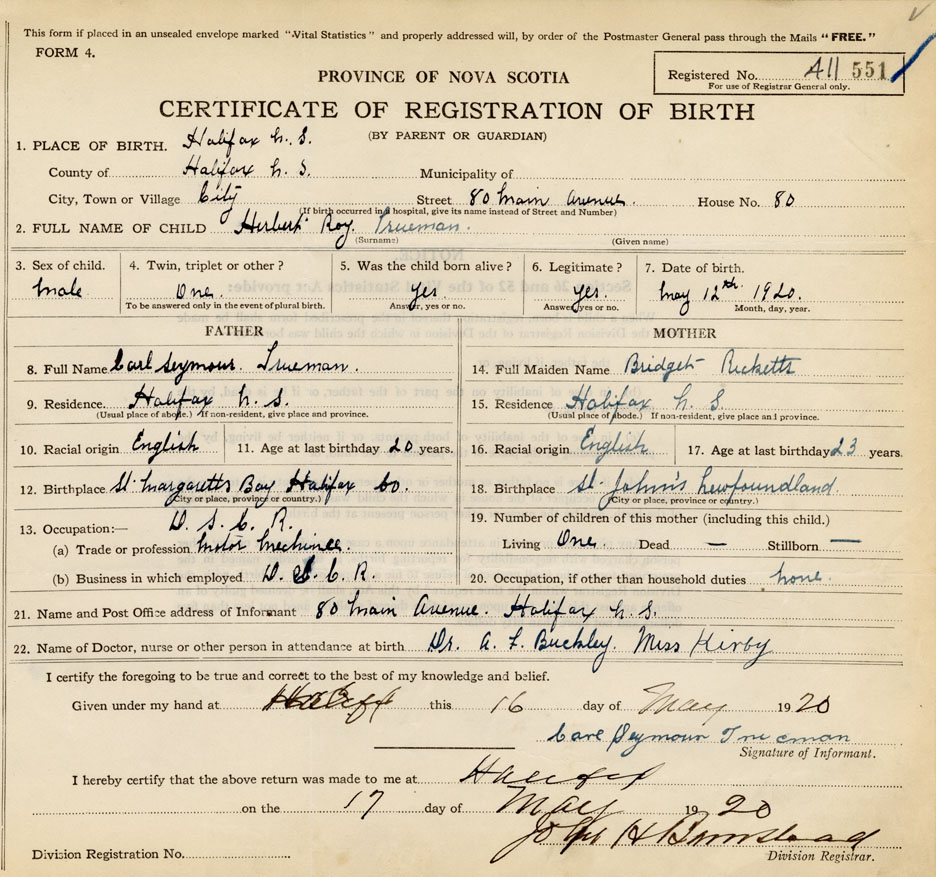 This form if placed in an unsealed envelope marked "Vital Statistics" and properly addressed will, by order of the Postmaster General pass through the Mails "FREE."
FORM 4.
Registered No. A11 551
For use of Registrar General only.
PROVINCE OF NOVA SCOTIA
CERTIFICATE OF REGISTRATION OF BIRTH
(BY PARENT OR GUARDIAN)
1. PLACE OF BIRTH. Halifax N. S.
County of Halifax N. S. Municipality of
City, Town or Village City Street 80 Main Avenue. House No. 80
(If birth occurred in a hospital, give its name instead of Street and Number)
2. FULL NAME OF CHILD Herbert Roy Trueman.
(Surname) (Given name)
3. Sex of child. 4. Twin, triplet or other? 5. Was the child born alive? 6. Legitimate? 7. Date of birth.
Male One. Yes. Yes. May 12th 1920.
To be answered only in the event of plural birth. Answer, yes or no. Answer, yes or no. Month, day, year.
FATHER MOTHER
8. Full Name Carl Seymour. Trueman. 14. Full Maiden Name Bridget Ricketts
9. Residence. Halifax N. S. 15. Residence Halifax N. S
(Usual place of abode.) If non-resident, give place and province. (Usual place of abode.) If non-resident, give place and province.
10. Racial origin English 11. Age at last birthday 20 years. 16. Racial origin English 17. Age at last birthday 23 years.
12. Birthplace St. Margaretts Bay Halifax Co. 18. Birthplace St. John's Newfoundland
(City or place, province or country.) (City or place, province or country.)
13. Occupation:— D. S. C. R. 19. Number of children of this mother (including this child.)
(a) Trade or profession Motor Mechinec. Living One. Dead — Stillborn —
(b) Business in which employed D. S. C. R. 20. Occupation, if other than household duties none.
21. Name and Post Office address of Informant 80 Main Avenue. Halifax N. S.
22. Name of Doctor, nurse or other person in attendance at birth Dr. A. F. Buckley. Miss Kirby
I certify the foregoing to be true and correct to the best of my knowledge and belief.
Given under my hand at Halifax this 16 day of May 1920
Carl Seymour Trueman
Signature of Informant.
I hereby certify that the above return was made to me at Halifax
on the 17 day of May 1920
John H Barnstead
Division Registration No. Division Registrar.